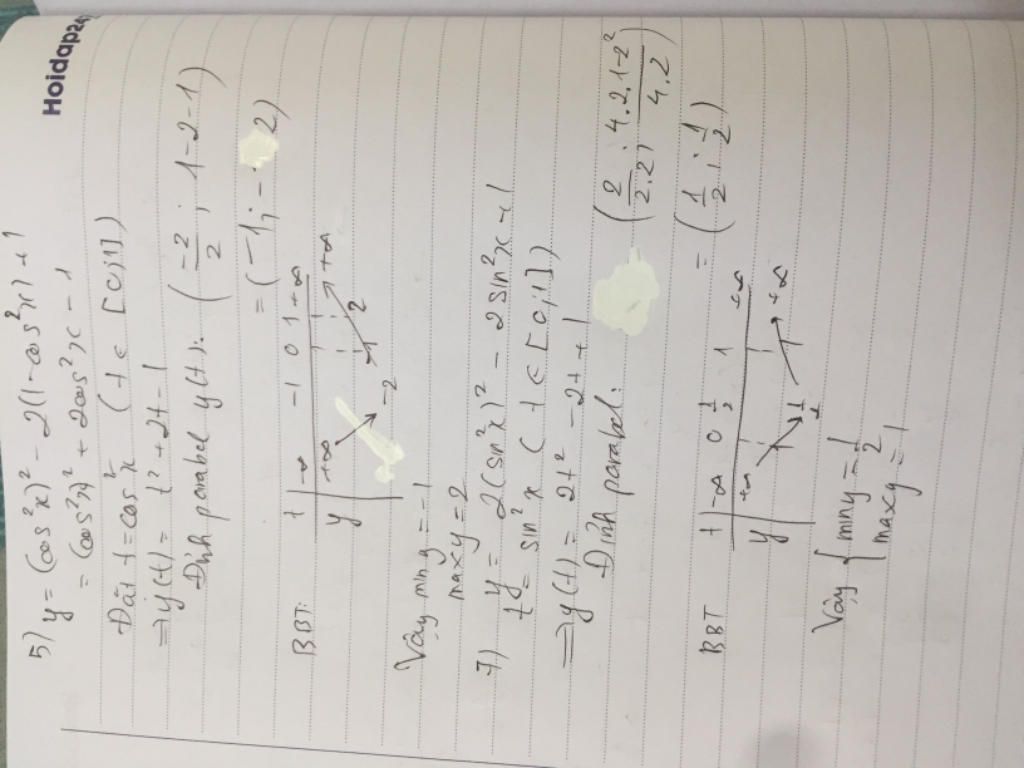 Hoidap247
5) y = (cos²x)² - 2(1-cos²x) + 1
= (cos²x)² + 2cos²x - 1
Đặt t = cos²x (t ∈ [0;1])
⇒ y(t) = t² + 2t - 1
Đỉnh parabel y(t): (-2/2 ; 1-2-1)
= (-1; -2)
BBT:
t | -∞ -1 0 1 +∞
y | +∞ -2 -1 2 +∞
Vậy min y = -1
max y = 2
7) y = 2(sin²x)² - 2sin²x + 1
t = sin²x (t ∈ [0;1])
⇒ y(t) = 2t² - 2t + 1
Đỉnh parabel: (2/2.2 ; 4.2.1-2²/4.2)
= (1/2 ; 1/2)
BBT t | -∞ 0 1/2 1 +∞
y | +∞ 1/2 +∞
Vậy { min y = 1/2
max y = 1